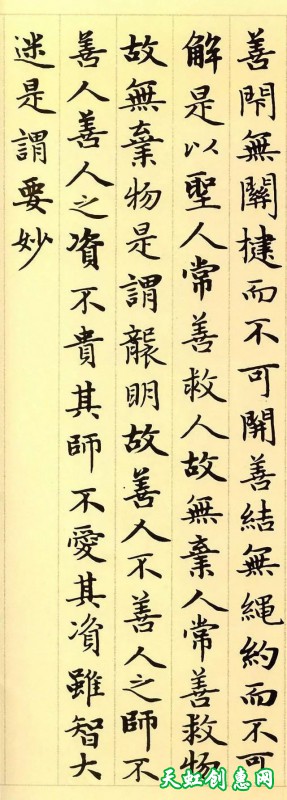 善閇無關楗而不可開善結無繩約而不可
解是以聖人常善救人故無棄人常善救物
故無棄物是謂襲明故善人不善人之師不
善人善人之資不貴其師不愛其資雖智大
迷是謂要妙
天虹创意网